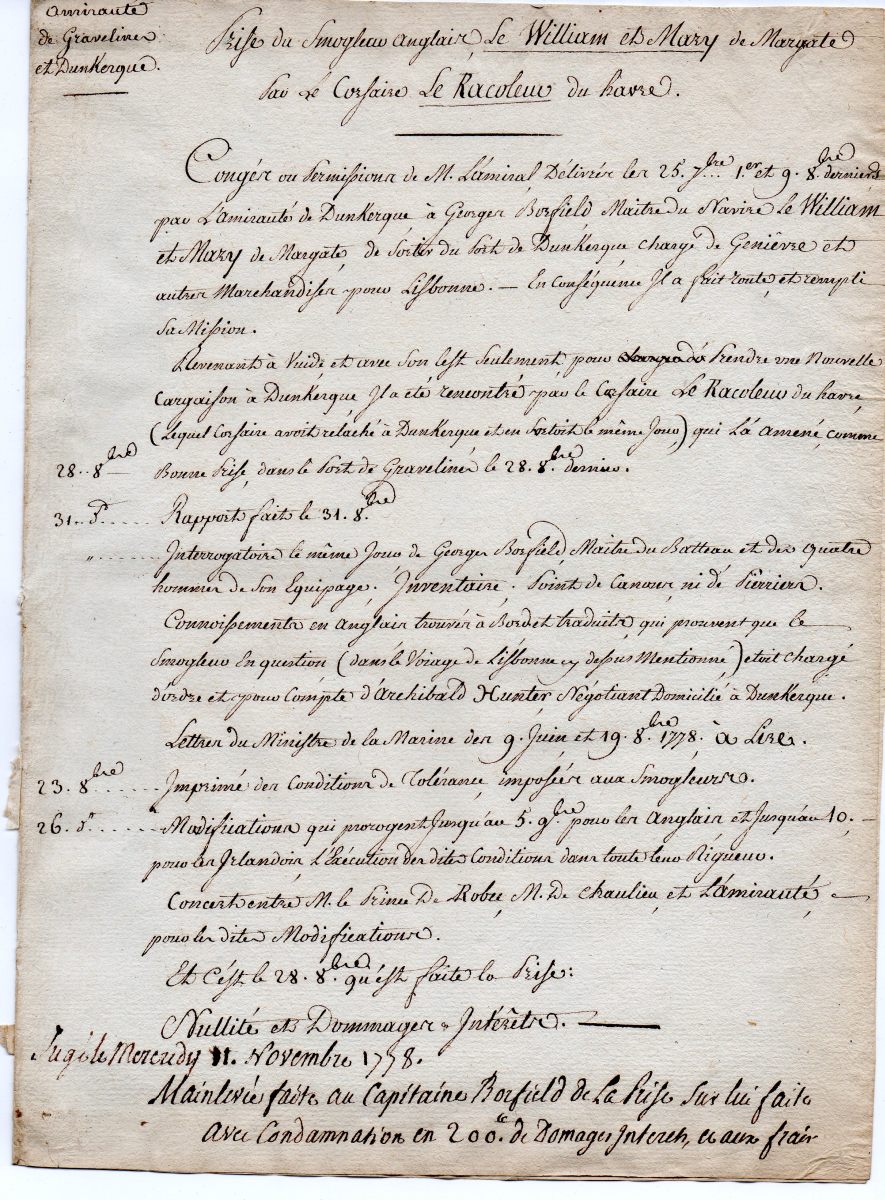 amirauté
de Gravelines
et Dunkerque.
Prise du Smogleur anglais, Le William et Mary de Margate
Par Le Corsaire Le Racoleur du havre.
Congés ou Permissions de M. L'amiral Délivrés les 25. 7.bre 1.er et 9. 8.bre derniers
par L'Amirauté de Dunkerque à Georges Borfield Maitre du Navire Le William
et Mary de Margate, de Sortir du Port de Dunkerque chargé de Genièvre et
autres Marchandises pour Lisbonne. — En conséquence Il a fait route, et rempli
Sa Mission.
Revenant à Vuide et avec Son lest Seulement pour Prendre une Nouvelle
Cargaison à Dunkerque Il a été rencontré par le Corsaire Le Racoleur du havre,
(Lequel Corsaire avoit relaché à Dunkerque et en Sortoit le même Jour) qui L'a amené, comme
28. 8.bre Bonne Prise, dans le Port de Gravelines le 28. 8.bre dernier.
31. d.o ..... Rapport fait le 31. 8.bre
" ......... Interrogatoire le même Jour de Georges Borfield, Maitre du Batteau et des quatre
hommes de Son Equipage. Inventaire. Point de Canons, ni de Pierriers.
Connoissements en anglais trouvés à Bord et traduits, qui prouvent que le
Smogleur En question (dans le Voiage de Lisbonne cy dessus Mentionné) etoit chargé
d'ordre et pour Compte d'Archibald Hunter Négotiant Domicilié à Dunkerque.
Lettres du Ministre de la Marine des 9. Juin et 19. 8.bre 1778. à Lire.
23. 8.bre ...... Imprimé des Conditions de Tolérance, imposées aux Smogleurs.
26. d.o ..... Modifications qui prorogent Jusqu'au 5. 9.bre pour les Anglais et Jusqu'au 10.
pour les Irlandois L'Exécution des dites Conditions dans toute leur Rigueur.
Concert entre M. le Prince De Robec M. De Chaulieu, et L'amirauté
pour les dites Modifications.
Et C'est le 28. 8.bre qu'est faite la Prise:
Nullité et Dommages-Intérêts.
Jugé le Mercredy 11. Novembre 1778.
Mainlevée faite au Capitaine Borfield de La Prise Sur lui faite
avec Condamnation en 200 de Domages Interets, et aux frais